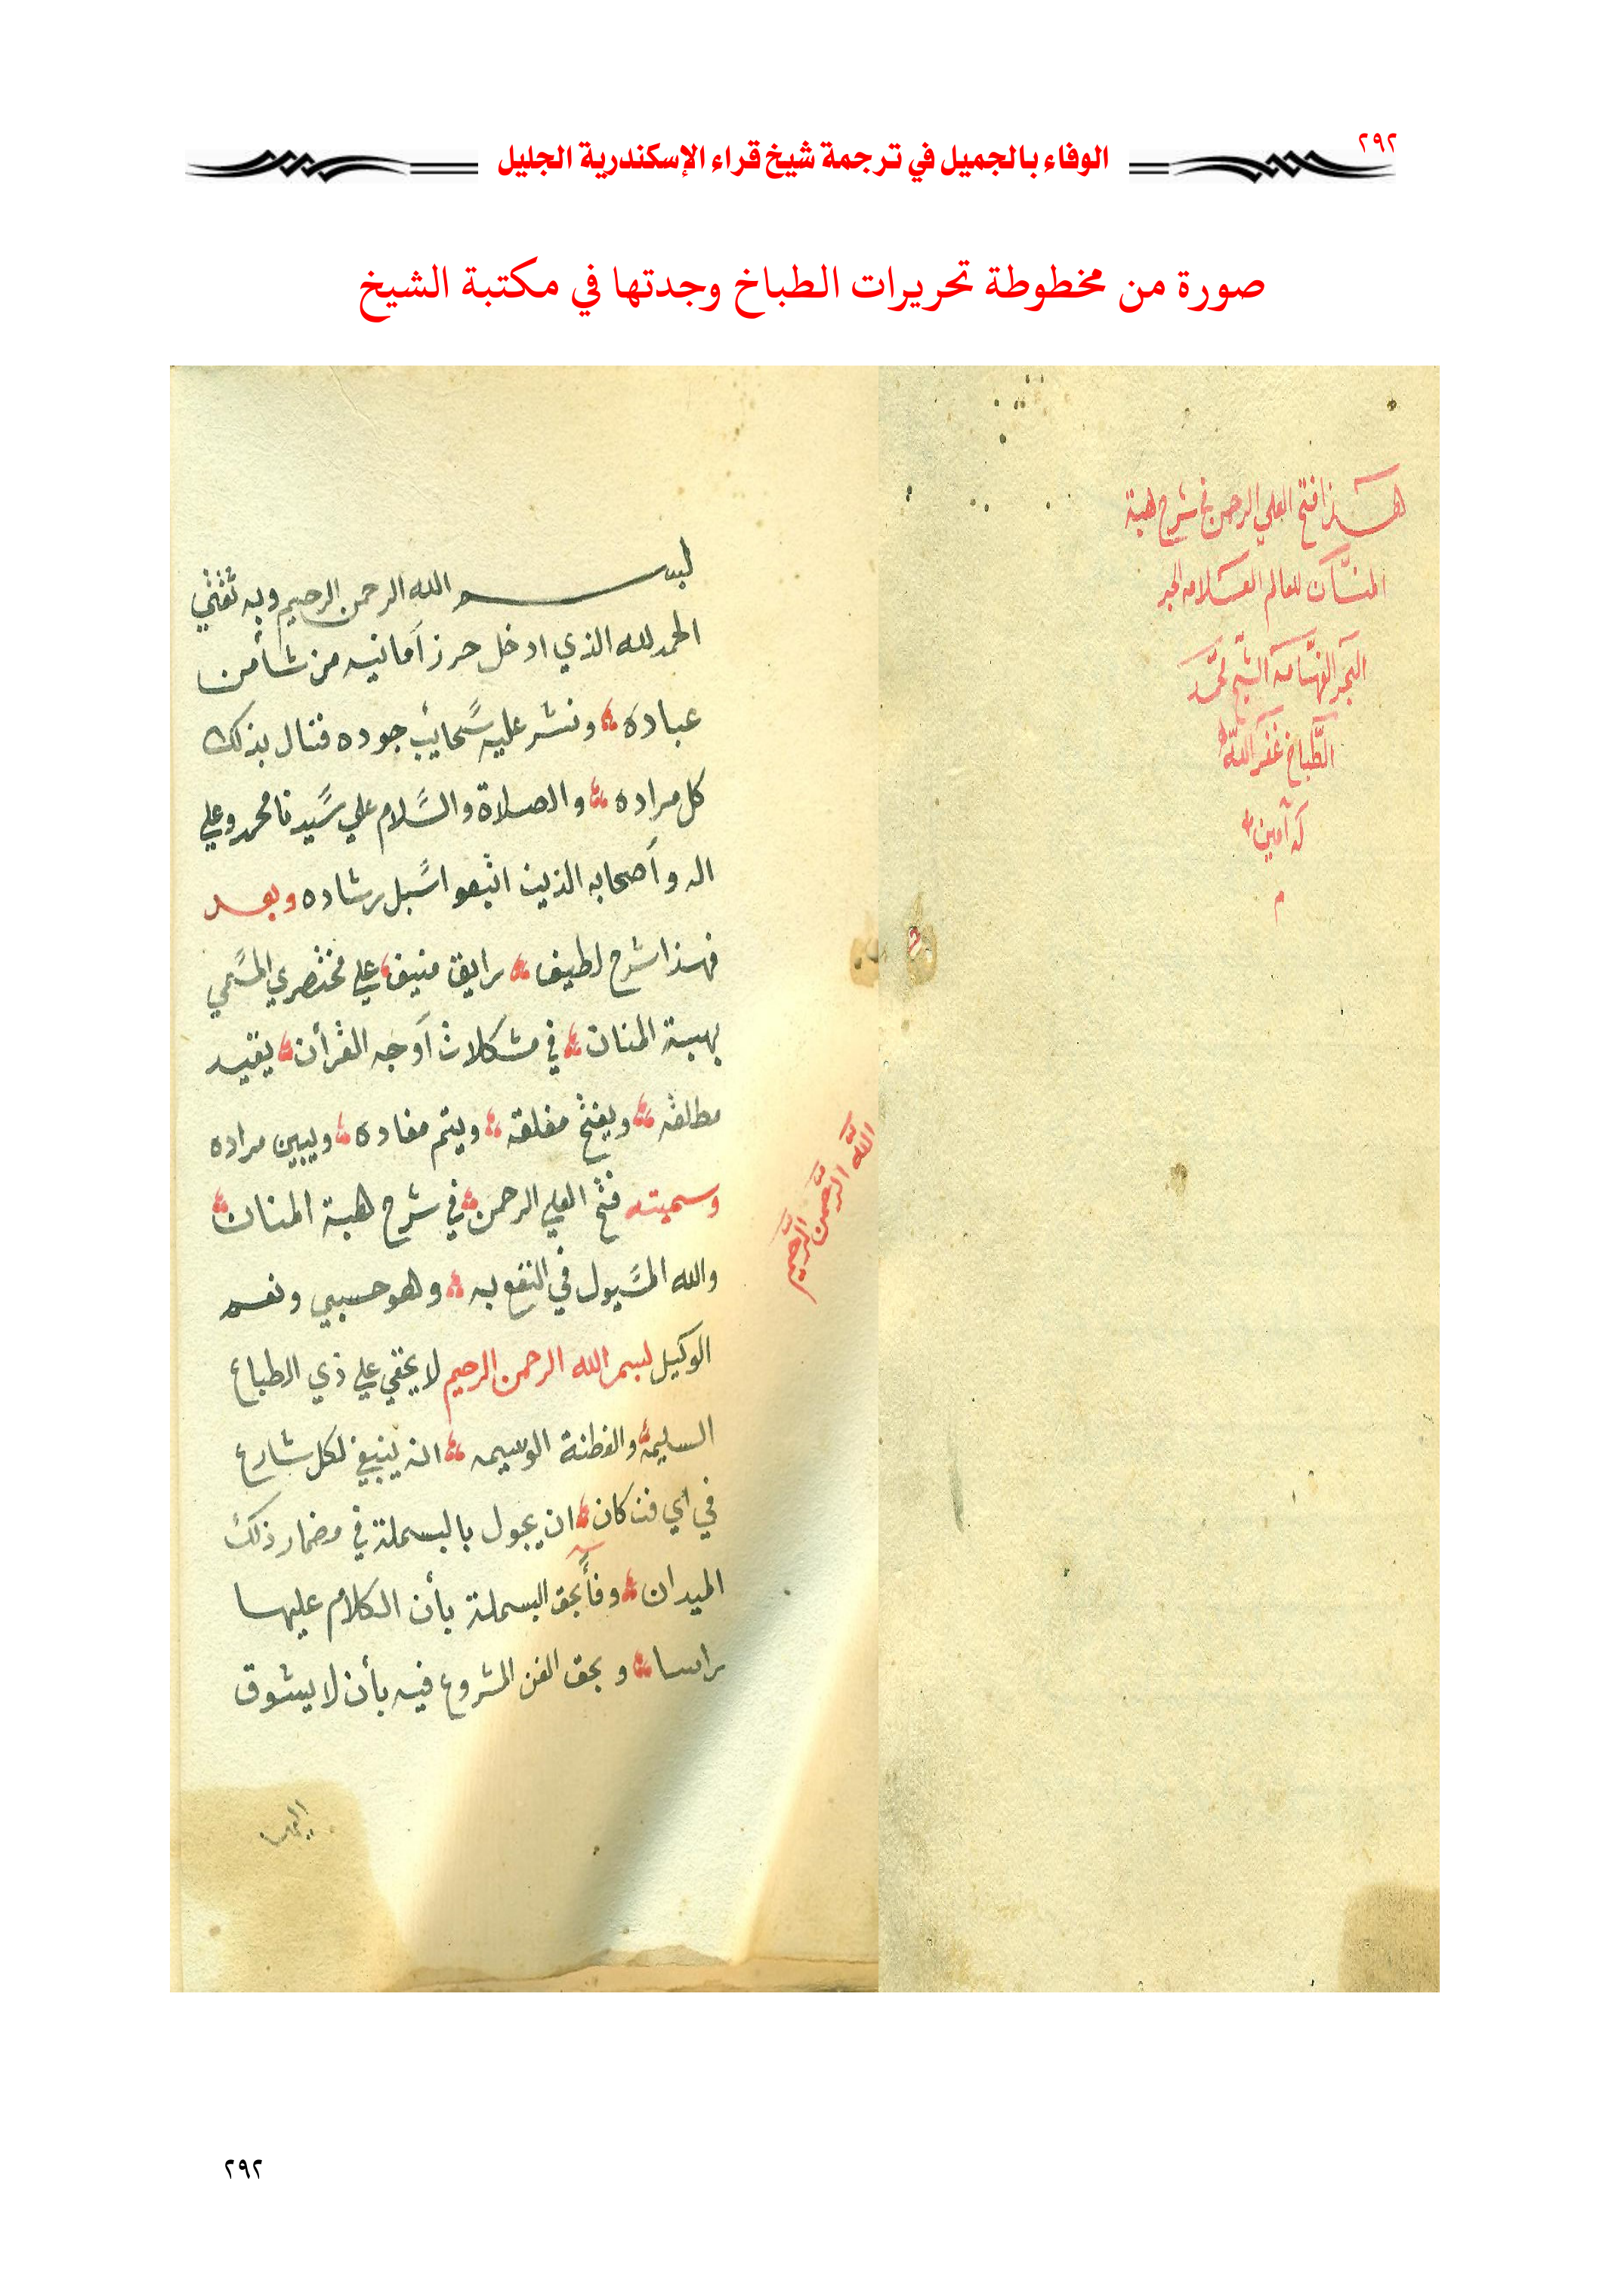 ٢٩٢
الوفاء بالجميل في ترجمة شيخ قراء الإسكندرية الجليل
صورة من مخطوطة تحريرات الطباخ وجدتها في مكتبة الشيخ
هذا فتح العلي الرحمن في شرح هبة
المنان للعالم العلامه الحبر
البحر الفهامه الشيخ محمد
الطباخ غفر الله
له آمين
م
بسم الله الرحمن الرحيم وبه ثقتي
الحمد لله الذي ادخل حرز أمانيه من شأ من
عباده ونشر عليه سحايب جوده فنال بذلك
كل مراده والصلاة والسلام علي سيدنا محمد وعلي
اله وأصحابه الذين اتبعوا سبل رشاده وبعد
فهذا شرح لطيف رايق منيف علي مختصري المسمي
بهبة المنان في مشكلات أوجه القرأن يقيد
مطلقه ويفتح مغلقه ويتم مفاده ويبين مراده
وسميته فتح العلي الرحمن في شرح هبة المنان
والله المسيول في النفع به وهو حسبي ونعم
الوكيل بسم الله الرحمن الرحيم لا يخفي علي ذي الطباع
السليمه والفطنة الوسيمه انه ينبغي لكل شارع
في اي فن كان ان يجول بالبسملة في مضمار ذلك
الميدان وفأ بحق البسملة بأن الكلام عليها
راسا وبحق الفن المشروع فيه بأن لا يسوق
الله الرحمن الرحيم
٢٩٢